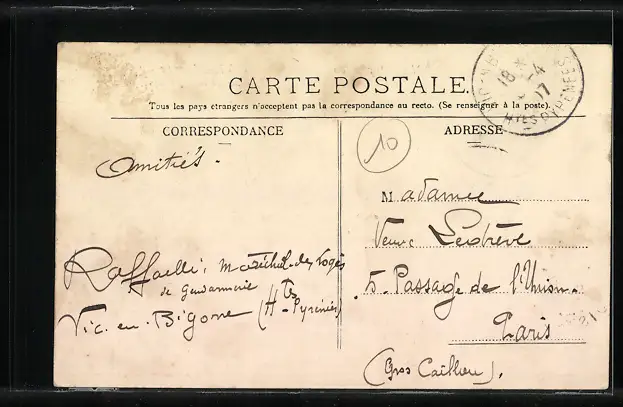 CARTE POSTALE.
Tous les pays étrangers n'acceptent pas la correspondance au recto. (Se renseigner à la poste).
CORRESPONDANCE
Amitiés.
Raffaelli, maréchal-des-logis
de Gendarmerie
Vic-en-Bigorre (Htes Pyrénées)
ADRESSE
10
Madame
Veuve
5. Passage de l'Union.
Paris
(Gros Caillou).
18
-4
07
HTES PYRENEES